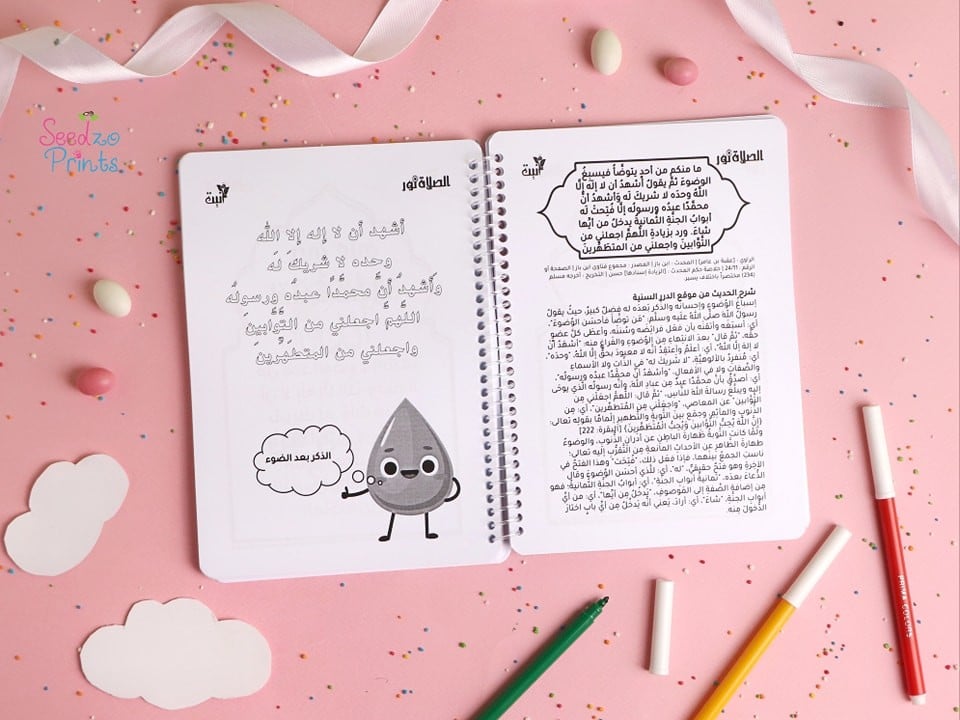 Seedzo
Prints
الصلاة نور
أنبت
ما منكم من أحدٍ يتوضَّأُ فيسبغُ
الوضوءَ ثمَّ يقولُ أشهدُ أن لا إلهَ إلَّا
اللَّهُ وحدَه لا شريكَ لَه وأشهدُ أنَّ
محمَّدًا عبدُه ورسولُه إلَّا فُتِحتْ لَه
أبوابُ الجنَّةِ الثَّمانيةُ يدخلُ من أيِّها
شاءَ. ورد بزيادةِ اللَّهمَّ اجعلني من
التَّوَّابينَ واجعلني من المتطَهِّرينَ
الراوي : [عقبة بن عامر] | المحدث : ابن باز | المصدر : مجموع فتاوى ابن باز | الصفحة أو
الرقم : 24/11 | خلاصة حكم المحدث : [الزيادة إسنادها] حسن | التخريج : أخرجه مسلم
(234) مختصراً باختلاف يسير
شرح الحديث من موقع الدرر السنية
إسباغُ الوُضوءِ وإحسانُه والذكرُ بَعدَه له فضلٌ كبيرٌ، حيثُ يقولُ
رسولُ اللهِ صلَّى اللهُ عليه وسلَّم: "مَن توضَّأَ فأحسَنَ الوُضوءَ"،
أي: أسبَغَه وأتقَنَه بأن فعَلَ فرائِضَه وسُننَه، وأعطَى كلَّ عضوٍ
حقَّه، "ثُمَّ قال" بعدَ الانتهاءِ مِن الوُضوءِ والفَراغِ مِنه: "أشهَدُ أنْ
لا إلهَ إلَّا اللهُ"، أي: أعلَمُ وأعتَقِدُ أنَّه لا معبودَ بحقٍّ إلَّا اللهُ، "وحدَه"،
أي: مُنفرِدٌ بالألوهيَّةِ، "لا شريكَ له" في الذاتِ ولا الأسماءِ
والصِّفاتِ ولا في الأفعالِ، "وأشهَدُ أنَّ محمَّدًا عبدُه ورسولُه"،
أي: أصدِّقُ بأنَّ محمَّدًا عبدٌ مِن عبادِ اللهِ، وأنَّه رسولُه الَّذي يوحَى
إليه ويبلِّغُ رسالةَ اللهِ للنَّاسِ، "ثمَّ قال: اللَّهمَّ اجعَلْني مِن
التَّوَّابينَ" عن المعاصي، "واجعَلْني مِن المُتطهِّرين"، أي: مِن
الذُّنوبِ والمآثِمِ، وجمَع بينَ التَّوبةِ والتَّطهيرِ إلمامًا بقولِه تعالى:
{إِنَّ اللَّهَ يُحِبُّ التَّوَّابِينَ وَيُحِبُّ الْمُتَطَهِّرِينَ} [البقرة: 222]
ولمَّا كانتِ التَّوبةُ طهارةَ الباطنِ عن أدرانِ الذُّنوبِ، والوُضوءُ
طهارةَ الظَّاهرِ عن الأحداثِ المانعةِ مِن التَّقرُّبِ إليه تعالى؛
ناسَبَ الجمعُ بينَهما، فإذا فعَل ذلك، "فُتِحَت" وهذا الفتحُ في
الآخرةِ وهو فتحٌ حقيقيٌّ، "له"، أي: للَّذي أحسَنَ الوُضوءَ وقال
الدُّعاءَ بعدَه، "ثمانيةُ أبوابِ الجنَّةِ"، أي: أبوابُ الجنَّةِ الثَّمانيةُ؛ فهو
مِن إضافةِ الصِّفةِ إلى المَوصوفِ، "يَدخُلُ مِن أيِّها"، أي: مِن أيِّ
أبوابِ الجنَّةِ، "شاءَ"، أي: أرادَ، يَعني أنَّه يَدخُلُ مِن أيِّ بابٍ اختارَ
الدُّخولَ مِنه.
الصلاة نور
أنبت
أشهد أن لا إله إلا الله
وحده لا شريكَ لَه
وأشهدُ أن محمدًا عبدُه ورسولُه
اللهم اجعلني من التوابينَ
واجعلني من المتطهرينَ
الذكر بعد الضوء
PRIMA COLORS